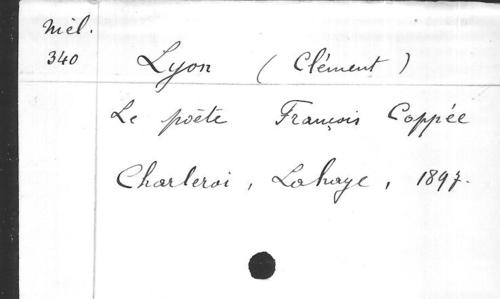 Mél.
340
Lyon (Clément)
Le poëte François Coppée
Charleroi, Lahaye, 1897.